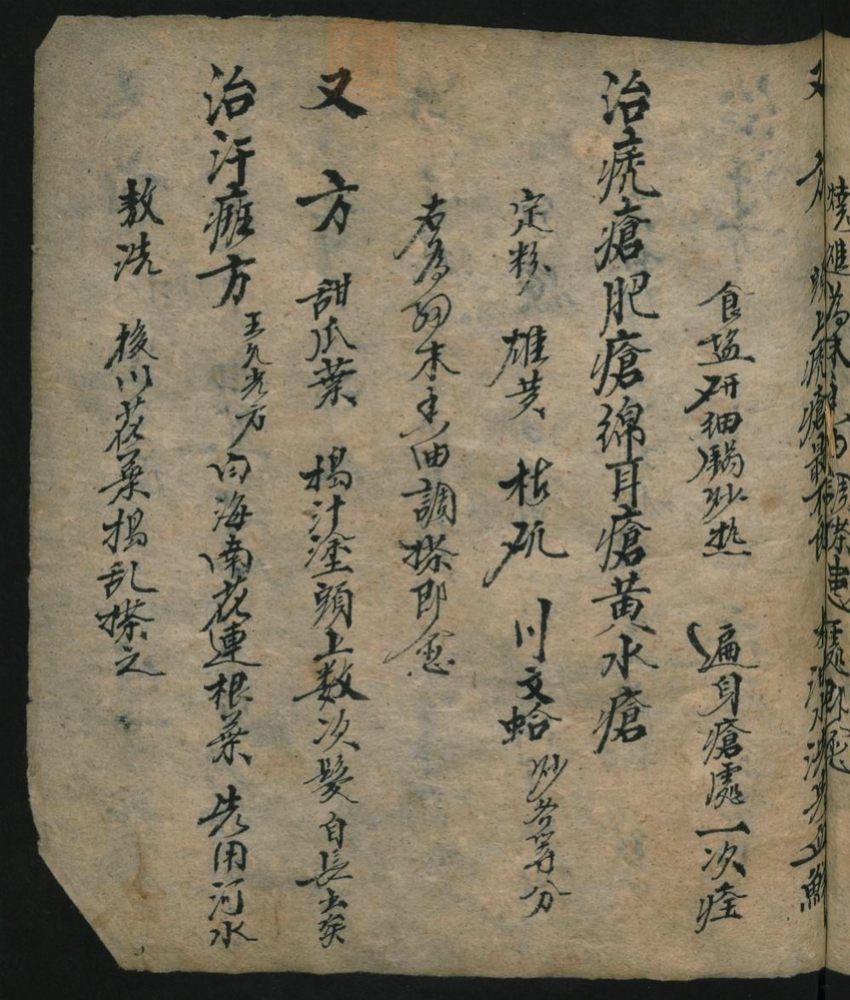 又方 頭上
食塩研細鍋炒热 遍身瘡處一次痊
治疮瘡肥瘡綿耳瘡黄水瘡
定粉 雄黄 枯矾 川文蛤 炒各等分
右為細末香油調搽即愈
又方 甜瓜葉 搗汁塗頭上数次髮自長出矣
治汗癍方 白海南花連根葉 先用河水
敖洗 後以花葉搗乱搽之